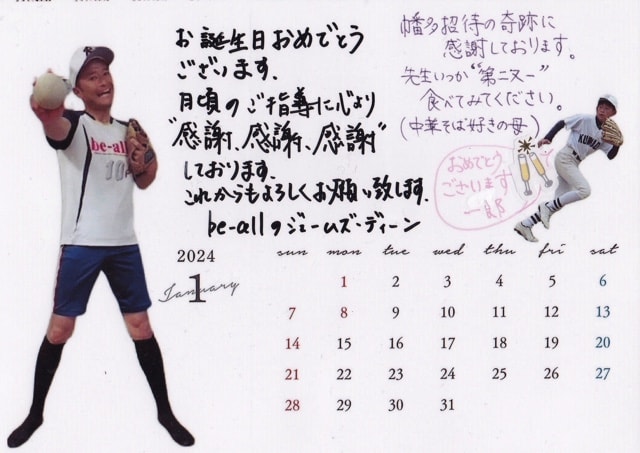 お誕生日おめでとう
ございます.
月頃のご指導に心より
"感謝、感謝、感謝"
しております.
これからもよろしくお願い致します.
be-allのジェームズ・ディーン
幡多招待の奇跡に
感謝しております。
先生いつか"第二又一"
食べてみてください。
(中華そば好きの母)
おめでとう
ございます
一郎
be-all
10
KUWA
2024
1
January
sun mon tue wed thu fri sat
1 2 3 4 5 6
7 8 9 10 11 12 13
14 15 16 17 18 19 20
21 22 23 24 25 26 27
28 29 30 31